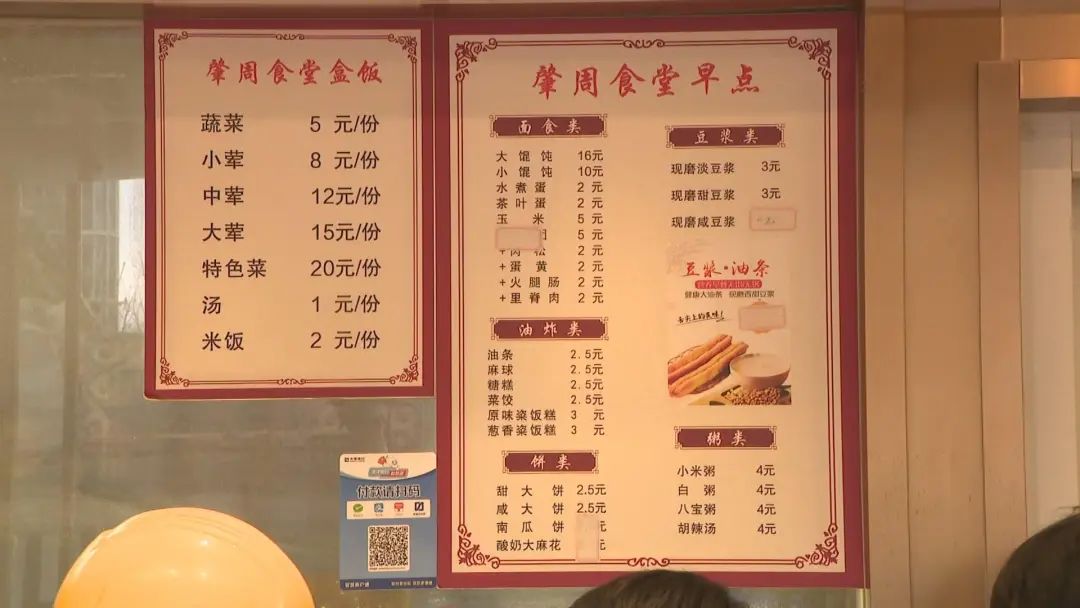 肇周食堂盒饭
蔬菜 5 元/份
小荤 8 元/份
中荤 12元/份
大荤 15元/份
特色菜 20元/份
汤 1 元/份
米饭 2 元/份
肇周食堂早点
面食类
大馄饨 16元
小馄饨 10元
水煮蛋 2 元
茶叶蛋 2 元
玉米 5 元
5 元
+肉松 2 元
+蛋黄 2 元
+火腿肠 2 元
+里脊肉 2 元
油炸类
油条 2.5元
麻球 2.5元
糖糕 2.5元
菜饺 2.5元
原味粢饭糕 3 元
葱香粢饭糕 3 元
饼类
甜大饼 2.5元
咸大饼 2.5元
南瓜饼 元
酸奶大麻花 元
豆浆类
现磨淡豆浆 3元
现磨甜豆浆 3元
现磨咸豆浆
豆浆·油条
健康大油条 现磨香甜豆浆
舌尖上的美味!
粥类
小米粥 4元
白粥 4元
八宝粥 4元
胡辣汤 4元
付款请扫码